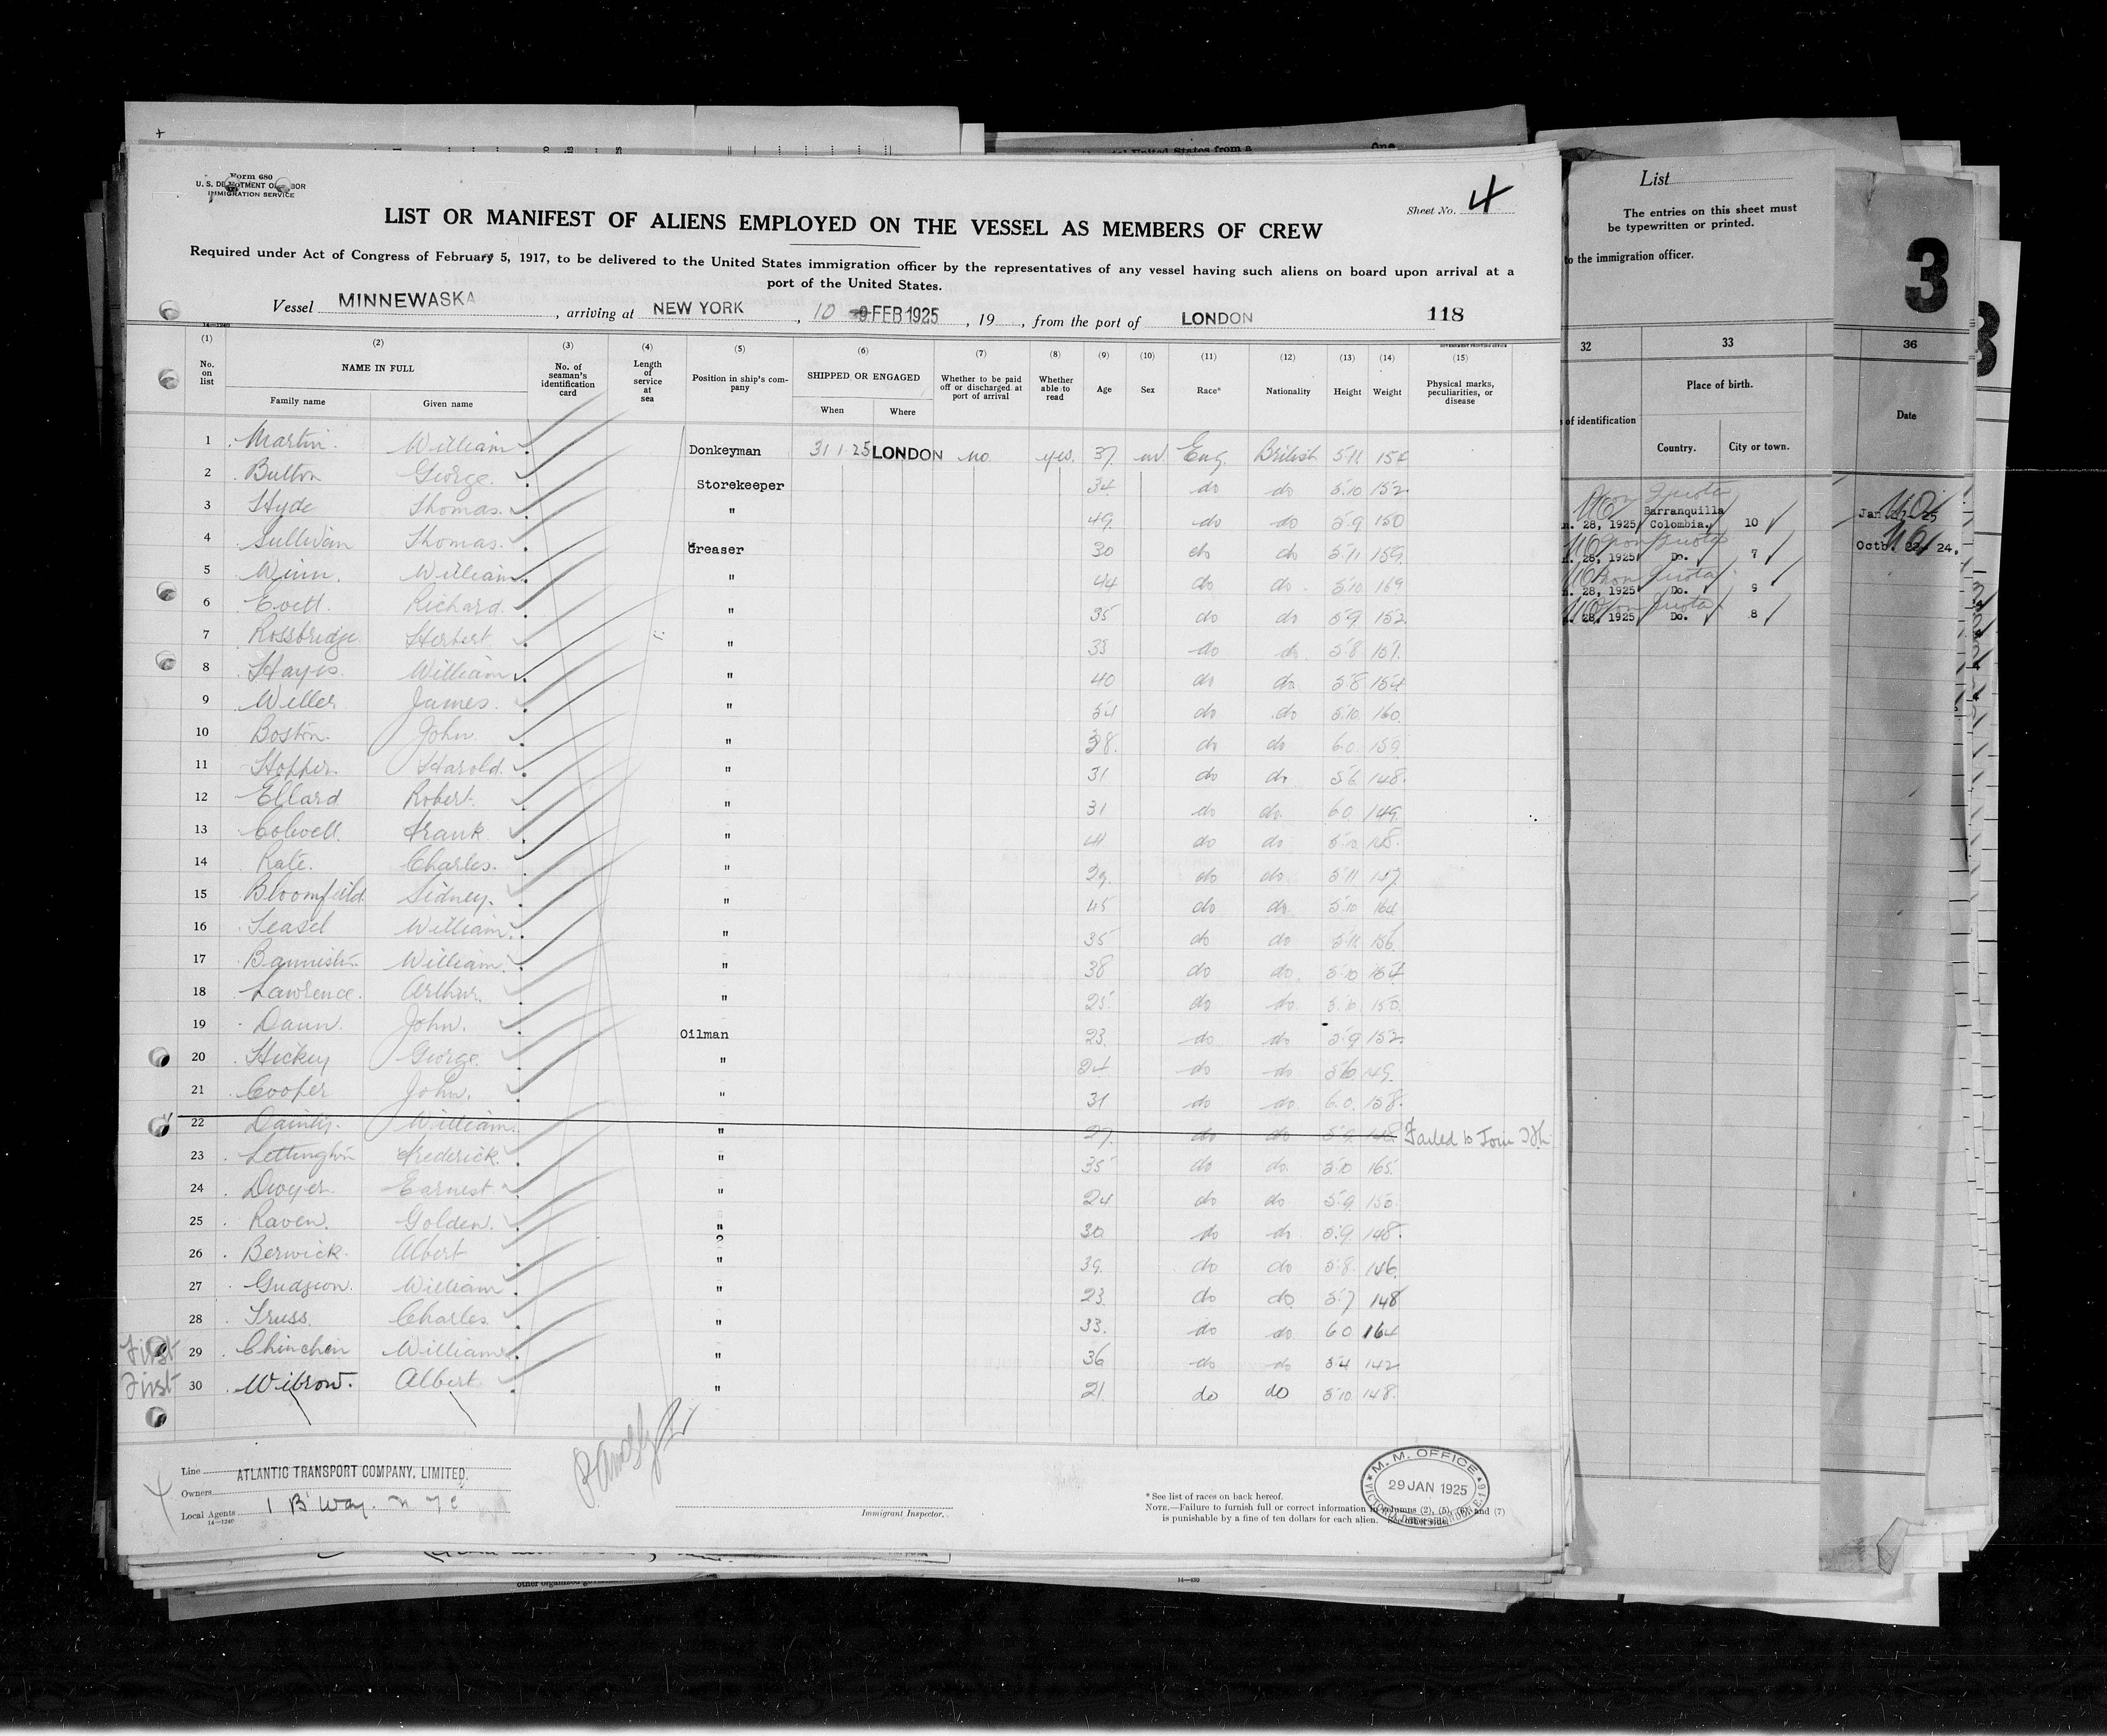 Form 680
U. S. DEPARTMENT OF LABOR
IMMIGRATION SERVICE
Sheet No. 4
LIST OR MANIFEST OF ALIENS EMPLOYED ON THE VESSEL AS MEMBERS OF CREW
Required under Act of Congress of February 5, 1917, to be delivered to the United States immigration officer by the representatives of any vessel having such aliens on board upon arrival at a
port of the United States.
Vessel MINNEWASKA, arriving at NEW YORK, 10 9 FEB 1925, 19, from the port of LONDON 118
(1) No. on list (2) NAME IN FULL Family name Given name (3) No. of seaman's identification card (4) Length of service at sea (5) Position in ship's company (6) SHIPPED OR ENGAGED When Where (7) Whether to be paid off or discharged at port of arrival (8) Whether able to read (9) Age (10) Sex (11) Race* (12) Nationality (13) Height (14) Weight (15) Physical marks, peculiarities, or disease
1 Martin William Donkeyman 31 1 25 LONDON no yes 37 m. Eng. British 5 11
2 Bulton George Storekeeper 34 do do 5 10 152
3 Hyde Thomas " 49 do do 5 9 150
4 Sullivan Thomas Greaser 30 do do 5 11 159
5 Winn William " 44 do do 5 10 169
6 Evett Richard " 35 do do 5 9 152
7 Rossbridge Herbert " 33 do do 5 8 157
8 Hayes William " 40 do do 5 8 154
9 Weller James " 54 do do 5 10 160
10 Boston John " 38 do do 6 0 159
11 Hopper Harold " 31 do do 5 6 148
12 Ellard Robert " 31 do do 6 0 149
13 Colwell Frank " 41 do do 5 10 148
14 Kate Charles " 29 do do 5 11 157
15 Bloomfield Sidney " 45 do do 5 10 164
16 Teasel William " 35 do do 5 11 156
17 Bannister William " 38 do do 5 10 164
18 Lawrence Arthur " 25 do do 150
19 Daun John Oilman 23 do do 5 9 152
20 Hickey George " 24 do do 5 6 149
21 Cooper John " 31 do do 6 0 158
22 Dainty William " 27 do do 5 9 148 Failed to Join
23 Lettington Frederick " 35 do do 5 10 165
24 Dwyer Earnest " 24 do do 5 9 150
25 Raven Golden " 30 do do 5 9 148
26 Berwick Albert " 39 do do 5 8 146
27 Gudgeon William " 23 do do 5 7 148
28 Truss Charles " 33 do do 6 0 164
First 29 Chinchen William " 36 do do 5 4 142
First 30 Wibrow Albert " 21 do do 5 10 148
Line ATLANTIC TRANSPORT COMPANY, LIMITED.
Owners
Local Agents 1 B'way. N Y C
14—1240
Immigrant Inspector.
* See list of races on back hereof.
NOTE.—Failure to furnish full or correct information in columns (2), (5), (6), and (7)
is punishable by a fine of ten dollars for each alien. See other side.
M. M. OFFICE
29 JAN 1925
List
The entries on this sheet must
be typewritten or printed.
to the immigration officer.
32 33
of identification Place of birth.
Country. City or town.
Non Quota
Barranquilla
28, 1925 Colombia. 10
28, 1925 Do. 7
28, 1925 Do. 9
28, 1925 Do. 8
3
36
Date
Jan 25
Octb. 22 24.